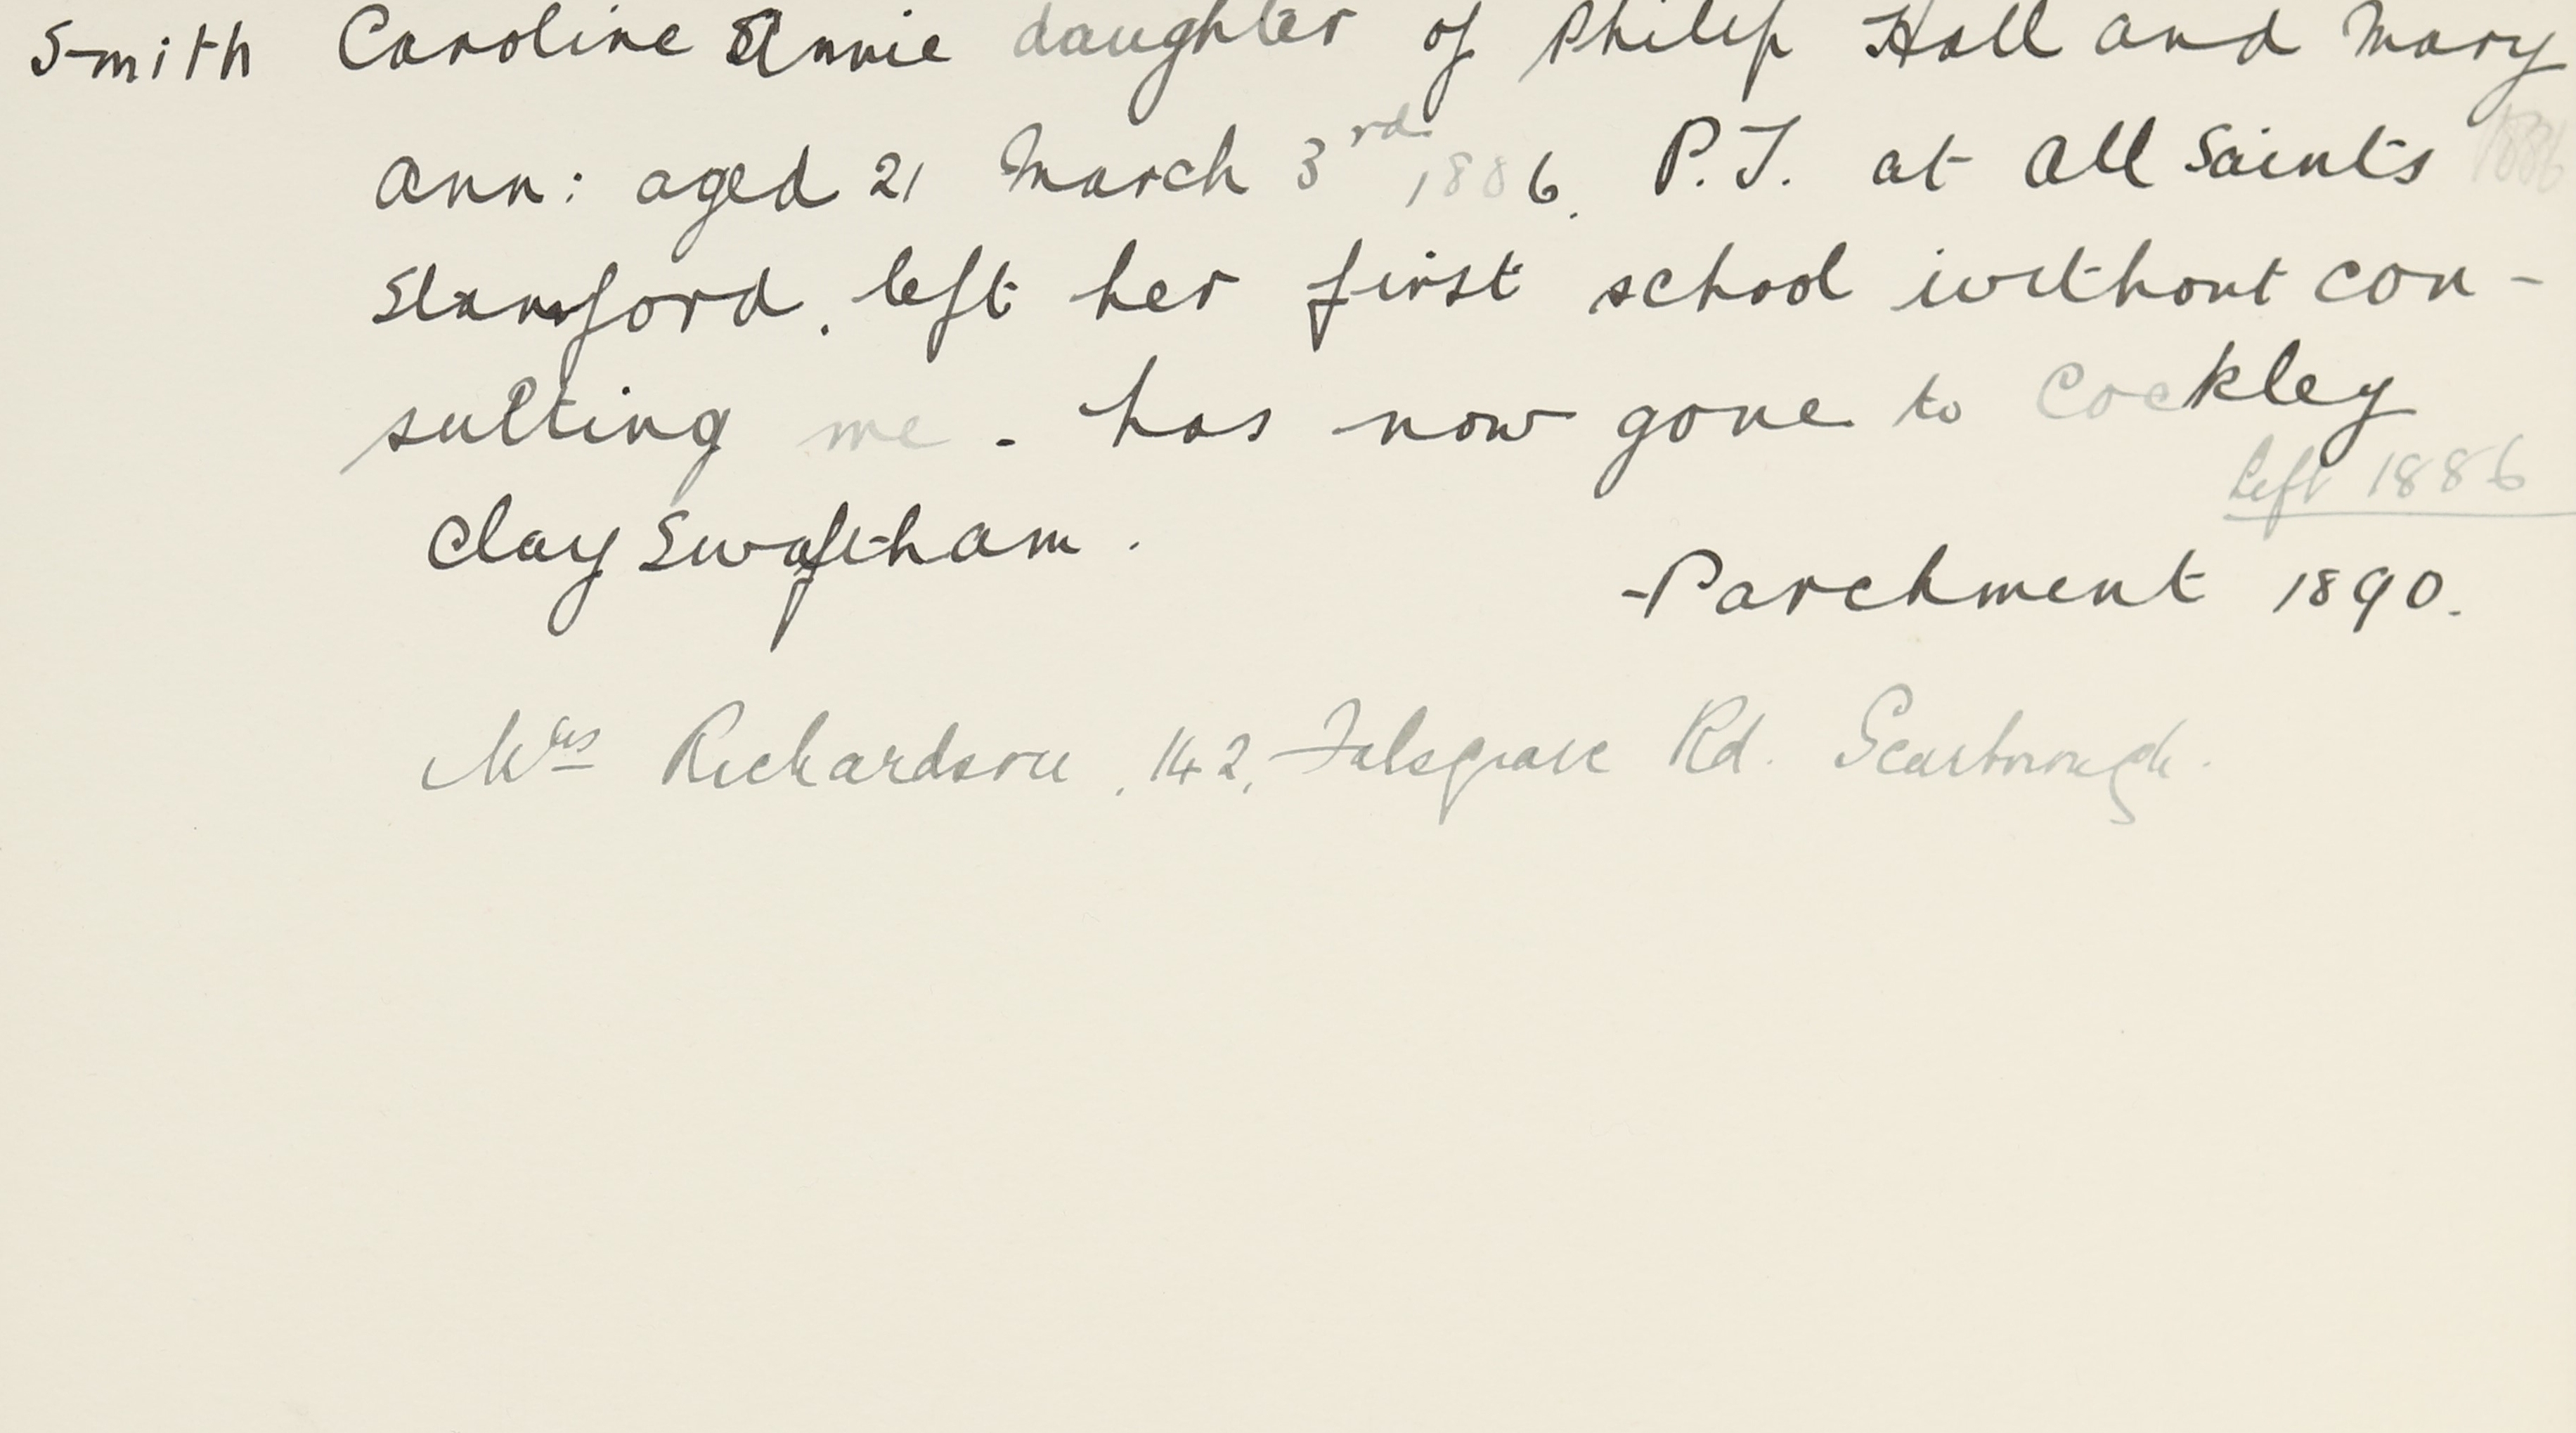 Smith Caroline Annie daughter of Philip Hall and Mary
Ann: aged 21 March 3rd 1886. P.T. at All Saints 1886
Stamford. left her first school without con-
sulting me - has now gone to Cockley
left 1886
Clay Swaftham.
-Parchment 1890.
Mrs Richardson, 142, Falsgrave Rd. Scarborough.